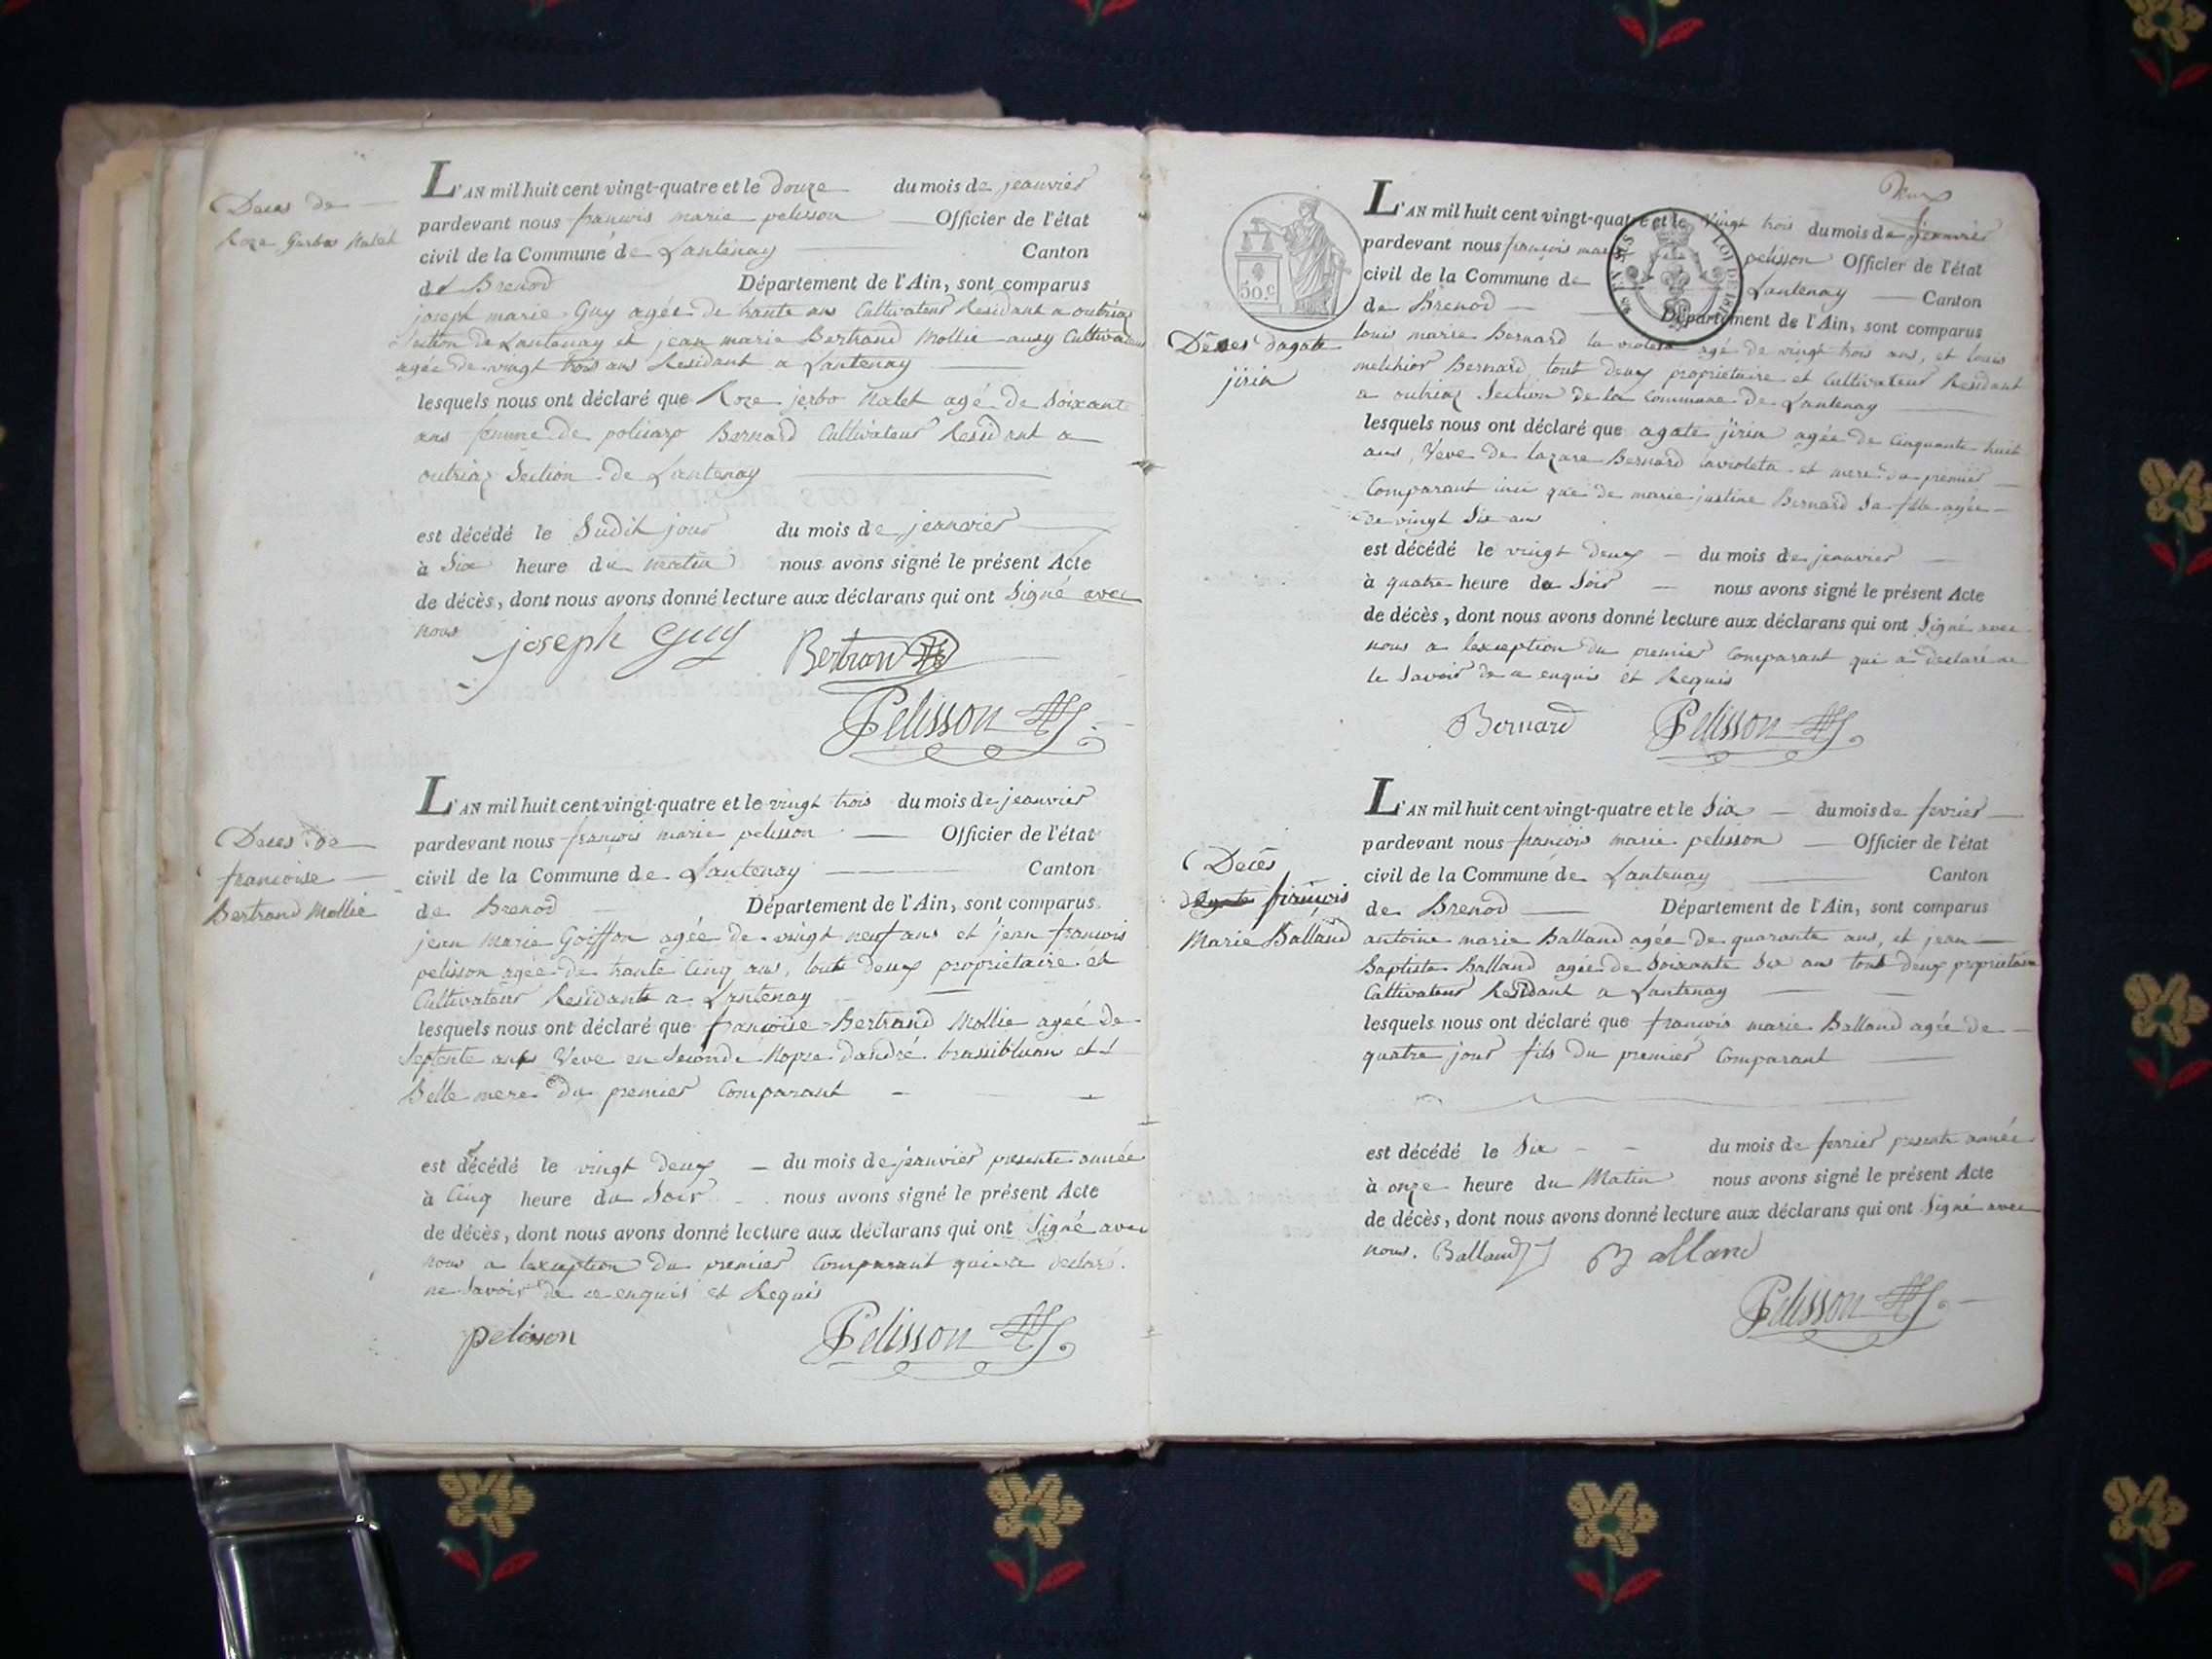 Deces de
Roze Gerbos Nalet
L'AN mil huit cent vingt-quatre et le douze du mois de jeanvier
pardevant nous francois marie pelisson Officier de l'état
civil de la Commune de Lantenay Canton
de Brenod Département de l'Ain, sont comparus
joseph marie Guy agée de trante ans Cultivateur Residant a outriaz
Section de Lantenay et jean marie Bertrand Mollie aussy Cultivateur
agée de vingt trois ans Residant a Lantenay
lesquels nous ont déclaré que Roze jerbo Nalet agé de Soixante
ans femme de policarp Bernard Cultivateur Residant a
outriaz Section de Lantenay
est décédé le Sudit jour du mois de jeanvier
à Six heure du matin nous avons signé le présent Acte
de décès, dont nous avons donné lecture aux déclarans qui ont Signé avec
nous
joseph Guy Bertran
Pelisson
Deces de
francoise
Bertrand Mollie
L'AN mil huit cent vingt-quatre et le vingt trois du mois de jeanvier
pardevant nous françois marie pelisson Officier de l'état
civil de la Commune de Lantenay Canton
de Brenod Département de l'Ain, sont comparus
jean Marie Goiffon agée de vingt neuf ans et jean francois
pelisson agée de trante Cinq ans, tout deux propriétaire et
Cultivateur Residants a Lantenay
lesquels nous ont déclaré que francoise Bertrand Mollie ageé de
Septente ans Veve en Seconde Nopce dandré et
Belle mere du premier Comparant
est décédé le vingt deux du mois de jeanvier presente année
à Cinq heure du Soir nous avons signé le présent Acte
de décès, dont nous avons donné lecture aux déclarans qui ont Signé avec
nous a lexception du premier Comparant qui a declaré
ne Savoir de ce enquis et Requis
pelisson Pelisson
Deux
50.c
LOI DE 18
Deces dagate
jirin
L'AN mil huit cent vingt-quatre et le vingt trois du mois de Jeanvier
pardevant nous françois marie pelisson Officier de l'état
civil de la Commune de Lantenay Canton
de Brenod Département de l'Ain, sont comparus
louis marie Bernard la violeta agé de vingt trois ans, et louis
melchior Bernard, tout deux propriétaire et Cultivateur Residant
a outriaz Section de la Commune de Lantenay
lesquels nous ont déclaré que agate jirin agée de Cinquante huit
ans, Veve de lazare Bernard lavioleta et mere du premier
Comparant insi que de marie justine Bernard Sa fille agée
de vingt Six ans
est décédé le vingt deux du mois de jeanvier
à quatre heure du Soir nous avons signé le présent Acte
de décès, dont nous avons donné lecture aux déclarans qui ont Signé avec
nous a lexception du premier Comparant qui a declaré ne
le Savoir de ce enquis et Requis
Bernard Pelisson
Deces
françois
Marie Balland
L'AN mil huit cent vingt-quatre et le Six du mois de fevrier
pardevant nous françois marie pelisson Officier de l'état
civil de la Commune de Lantenay Canton
de Brenod Département de l'Ain, sont comparus
antoine marie Balland agée de quarante ans, et jean
Baptiste Balland agée de Soixante Six ans tout deux proprietaire
Cultivateur Residant a Lantenay
lesquels nous ont déclaré que francois marie Balland agée de
quatre jour fils du premier Comparant
est décédé le Six du mois de fevrier presente année
à onze heure du Matin nous avons signé le présent Acte
de décès, dont nous avons donné lecture aux déclarans qui ont Signé avec
nous. Balland Balland
Pelisson